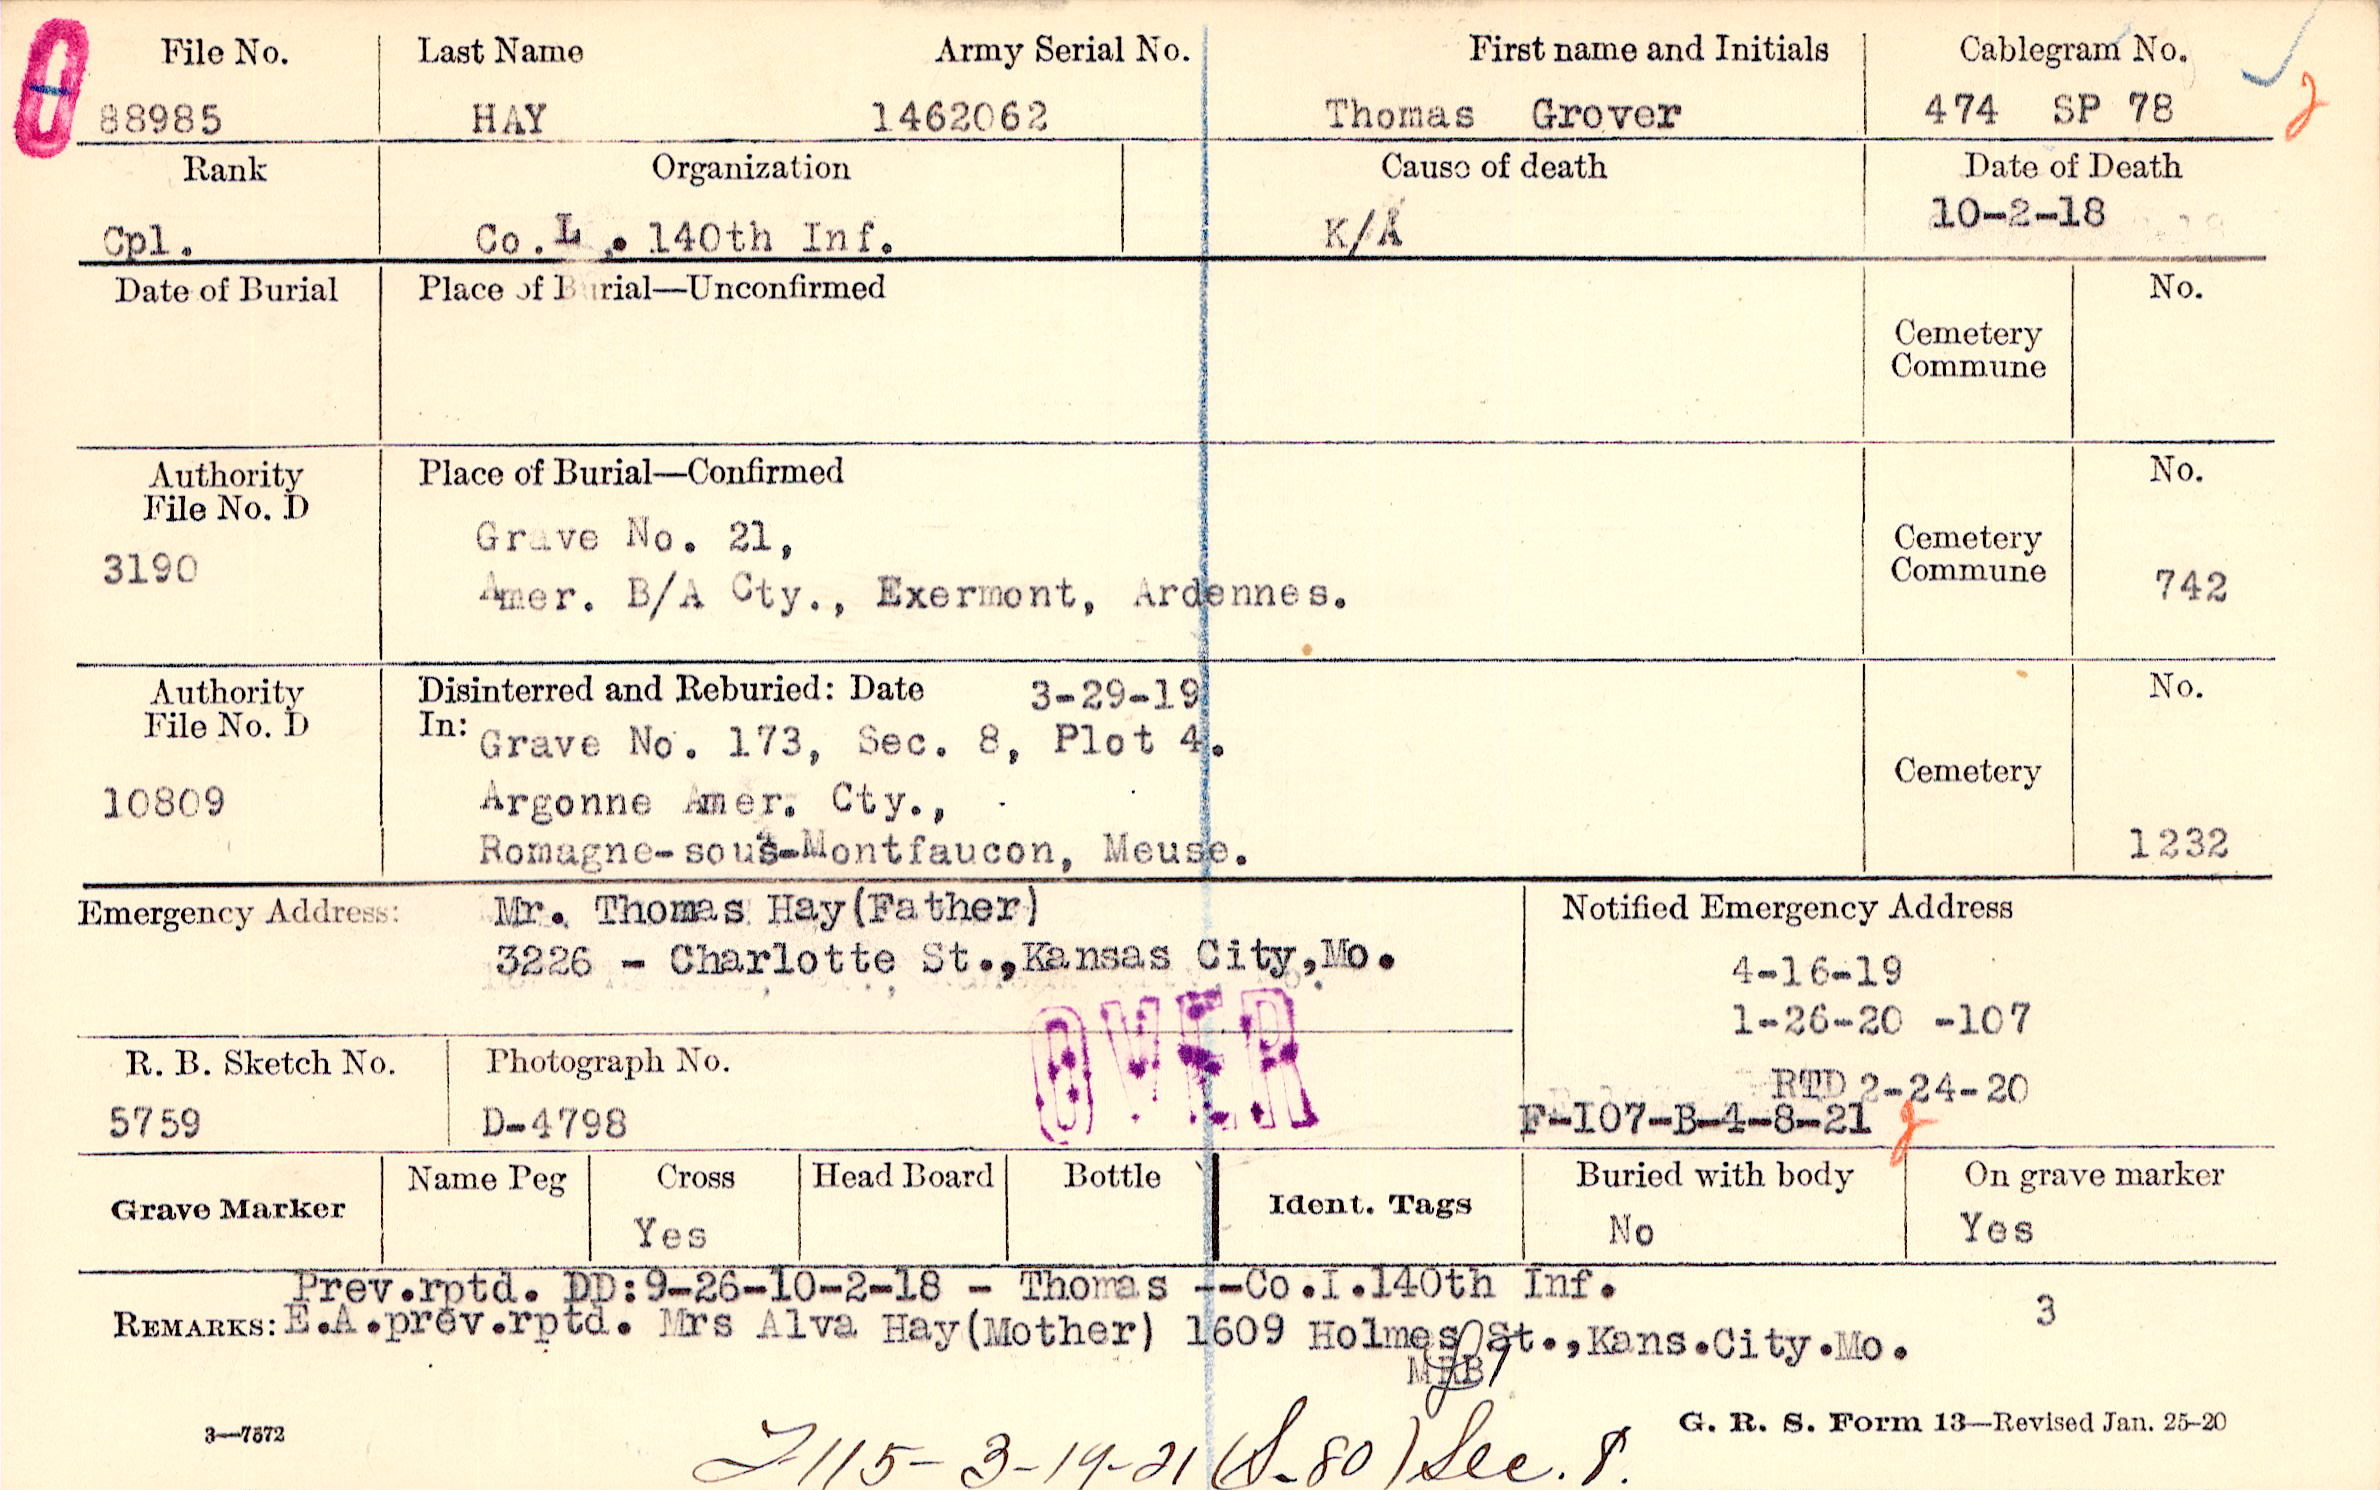 File No. Last Name Army Serial No. First name and Initials Cablegram No.
88985 HAY 1462062 Thomas Grover 474 SP 78
Rank Organization Cause of death Date of Death
Cpl. Co. L . 140th Inf. K/A 10-2-18
Date of Burial Place of Burial—Unconfirmed No.
Cemetery
Commune
Authority Place of Burial—Confirmed No.
File No. D
Grave No. 21, Cemetery
3190 Amer. B/A Cty., Exermont, Ardennes. Commune 742
Authority Disinterred and Reburied: Date 3-29-19 No.
File No. D In: Grave No. 173, Sec. 8, Plot 4.
Cemetery
10809 Argonne Amer. Cty.,
Romagne-sous-Montfaucon, Meuse. 1232
Emergency Address: Mr. Thomas Hay(Father) Notified Emergency Address
3226 - Charlotte St.,Kansas City,Mo. 4-16-19
OVER 1-26-20 -107
R. B. Sketch No. Photograph No. RTD 2-24-20
5759 D-4798 F-107-B-4-8-21
Grave Marker Name Peg Cross Head Board Bottle Ident. Tags Buried with body On grave marker
Yes No Yes
Prev.rptd. DD:9-26-10-2-18 - Thomas --Co.I.140th Inf. 3
REMARKS: E.A.prev.rptd. Mrs Alva Hay(Mother) 1609 Holmes St.,Kans.City.Mo.
MRB
3—7572 G. R. S. Form 13—Revised Jan. 25-20
115-3-19-21 (S-80) Sec. 8.